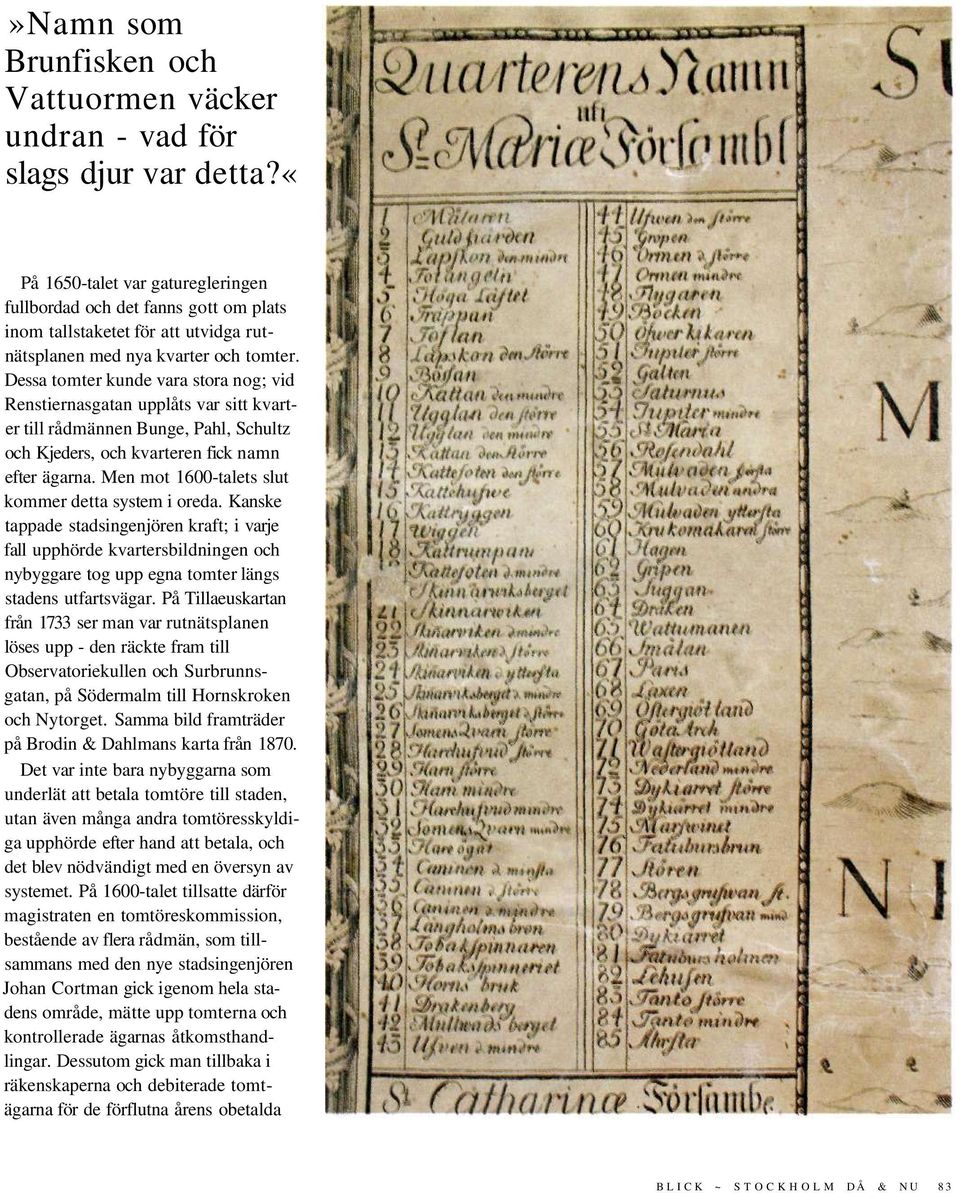 »Namn som
Brunfisken och
Vattuormen väcker
undran - vad för
slags djur var detta?«
På 1650-talet var gaturegleringen
fullbordad och det fanns gott om plats
inom tallstaketet för att utvidga rut-
nätsplanen med nya kvarter och tomter.
Dessa tomter kunde vara stora nog; vid
Renstiernasgatan upplåts var sitt kvart-
er till rådmännen Bunge, Pahl, Schultz
och Kjeders, och kvarteren fick namn
efter ägarna. Men mot 1600-talets slut
kommer detta system i oreda. Kanske
tappade stadsingenjören kraft; i varje
fall upphörde kvartersbildningen och
nybyggare tog upp egna tomter längs
stadens utfartsvägar. På Tillaeuskartan
från 1733 ser man var rutnätsplanen
löses upp - den räckte fram till
Observatoriekullen och Surbrunns-
gatan, på Södermalm till Hornskroken
och Nytorget. Samma bild framträder
på Brodin & Dahlmans karta från 1870.
Det var inte bara nybyggarna som
underlät att betala tomtöre till staden,
utan även många andra tomtöresskyldi-
ga upphörde efter hand att betala, och
det blev nödvändigt med en översyn av
systemet. På 1600-talet tillsatte därför
magistraten en tomtöreskommission,
bestående av flera rådmän, som till-
sammans med den nye stadsingenjören
Johan Cortman gick igenom hela sta-
dens område, mätte upp tomterna och
kontrollerade ägarnas åtkomsthand-
lingar. Dessutom gick man tillbaka i
räkenskaperna och debiterade tomt-
ägarna för de förflutna årens obetalda
Quarterens Namn
uti
St Mariæ Försambl
1 Mälaren
2 Guldfiärden
3 Lapskon den mindri
4 Totängeln
5 Höga Läftet
6 Trappan
7 Toflan
8 Lapskon den Större
9 Bössan
10 Kattan den mindre
11 Ugglan den större
12 Ugglan den mindre
13 Kattan den Större
14 Kattefoten den större
15 Kattehufwe
16 Kattryggen
17 Wiggen
18 Kattrumpan
Kattefoten d. mindre
Skinarwiksberget
21 Skinnarwiken
22 Skinarviken d. mindre
Skinarviken d. Större
Skinarviken d yttersta
25 Skinarviksberget d. mindre
26 Skinarviksberget d. större
27 Somens Qvarn större
28 Harehufvud större
29 Harn större
30 Harn mindre
31 Harehufvud mindre
32 Somens Qvarn mindre
Hare ögat
34 Caninen d. minsta
35 Caninen d. Större
36 Caninen d. mindre
37 Långholms bron
38 Tobakspinnaren
39 Tobakspinneriet
40 Horns bruk
41 Drakenberg
42 Mullwads berget
43 Ufven d. mindre
44 Ufwen den större
45 Gropen
46 Ormen d. större
47 Ormen mindre
48 Flygaren
49 Bocken
50 Öfwerkikaren
51 Jupiter större
52 Galten
53 Saturnus
54 Jupiter mindre
55 St Maria
56 Rosendahl
57 Mulvaden första
58 Mulvaden andra
59 Mulvaden yttersta
60 Krukomakaren
61 Hagen
62 Gripen
63 Suggan
64 Draken
65 Wattumanen
66 Smålan
67 Paris
68 Laxen
69 Östergiötland
70 Göta Arch
71 Wästergiötland
72 Nederland mindre
73 Dykiärret större
74 Dykiärret mindre
75 Marswinet
76 Fatubursbrun
77 Stören
78 Bergsgrufvan st.
79 Bergsgrufvan mind
80 Dykiarret
81 Fatuburs holmen
82 Lehusen
83 Tanto större
84 Tanto mindre
85 Åhrsta
St Catharinæ Församb
S
M
N
BLICK ~ STOCKHOLM DÅ & NU 83